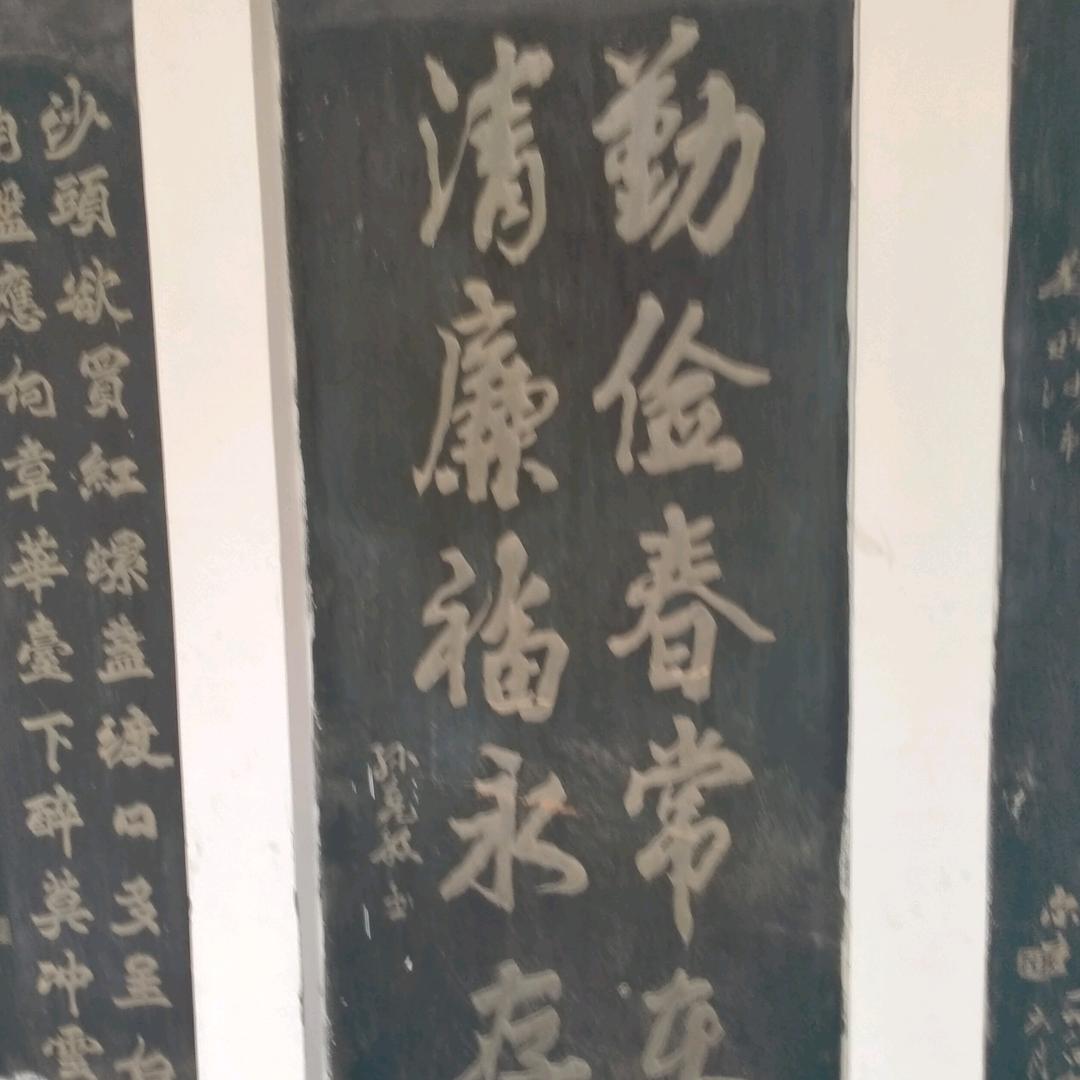 勤俭春常在
清廉福永存
沙頭欲買紅螺盞渡口多呈白
應向章華臺下醉莫冲雲